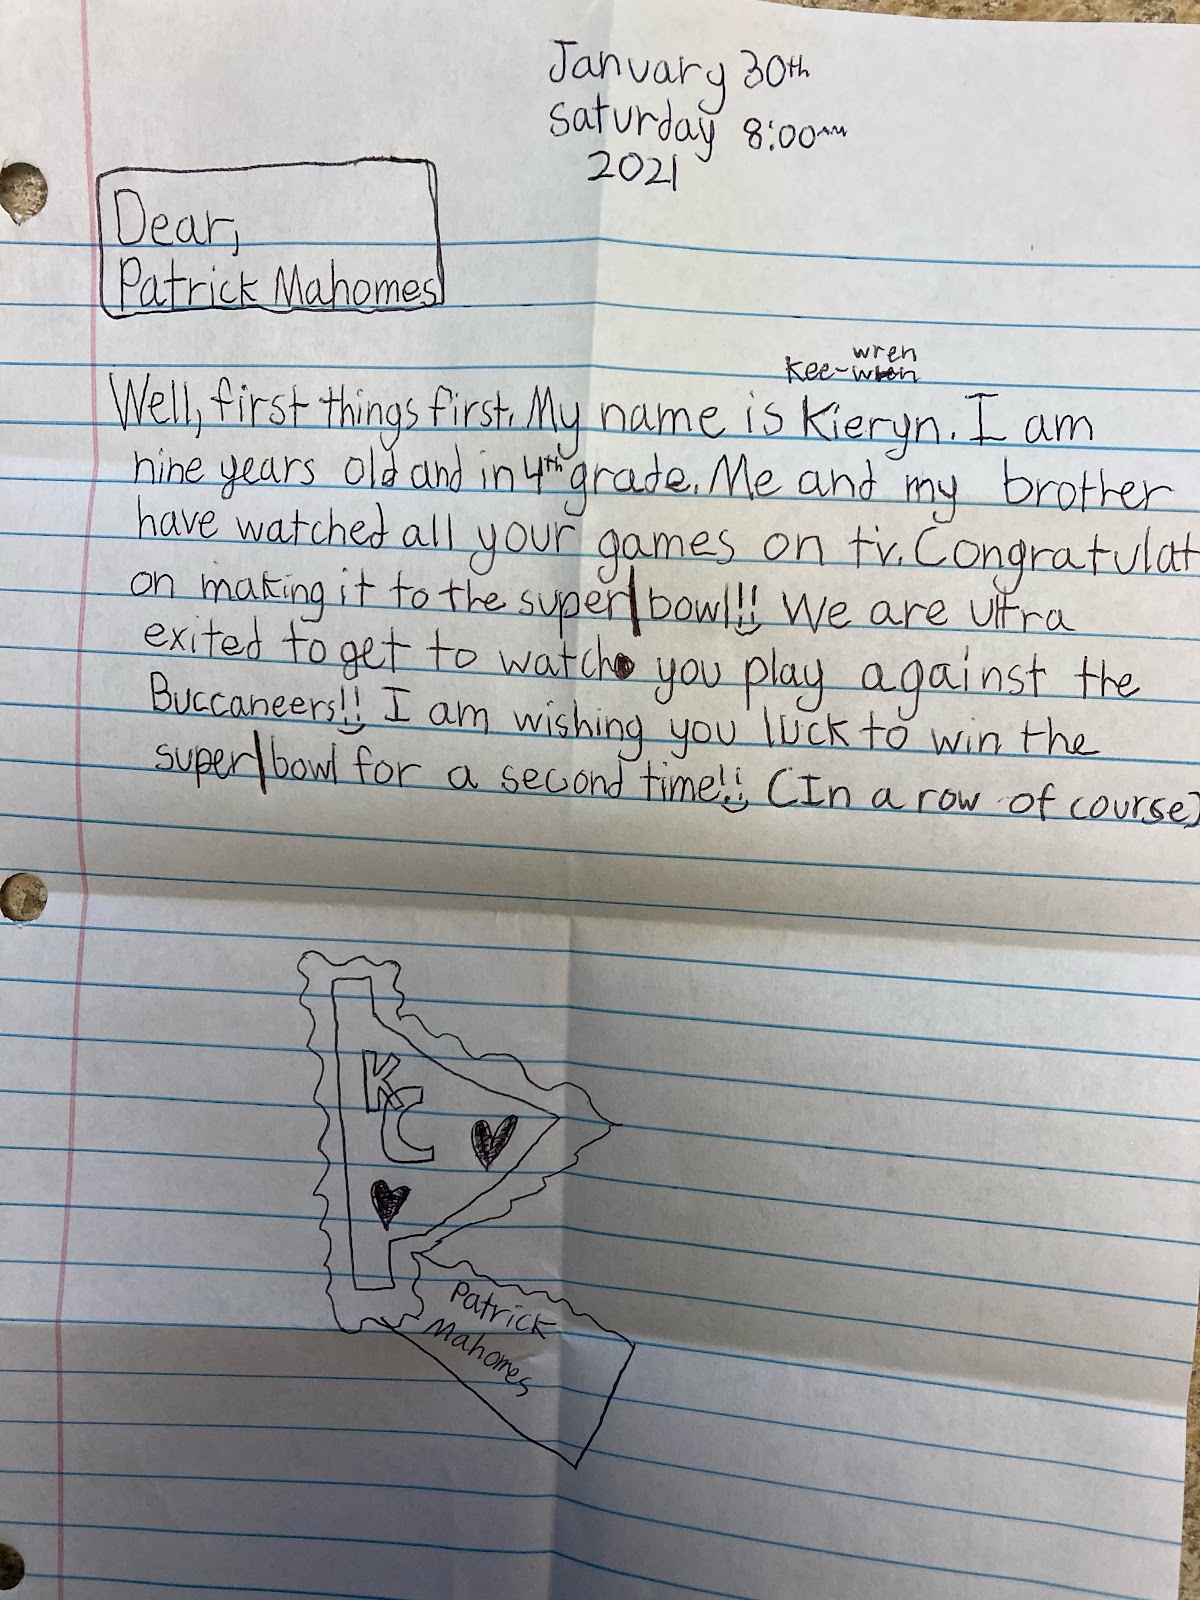 January 30th
Saturday 8:00am
2021
Dear,
Patrick Mahomes
wren
Kee-
Well, first things first. My name is Kieryn. I am
nine years old and in 4th grade. Me and my brother
have watched all your games on tv. Congratulat
on making it to the super|bowl!! We are ultra
exited to get to watch you play against the
Buccaneers!! I am wishing you luck to win the
super|bowl for a second time!! (In a row of course)
KC
Patrick
Mahomes